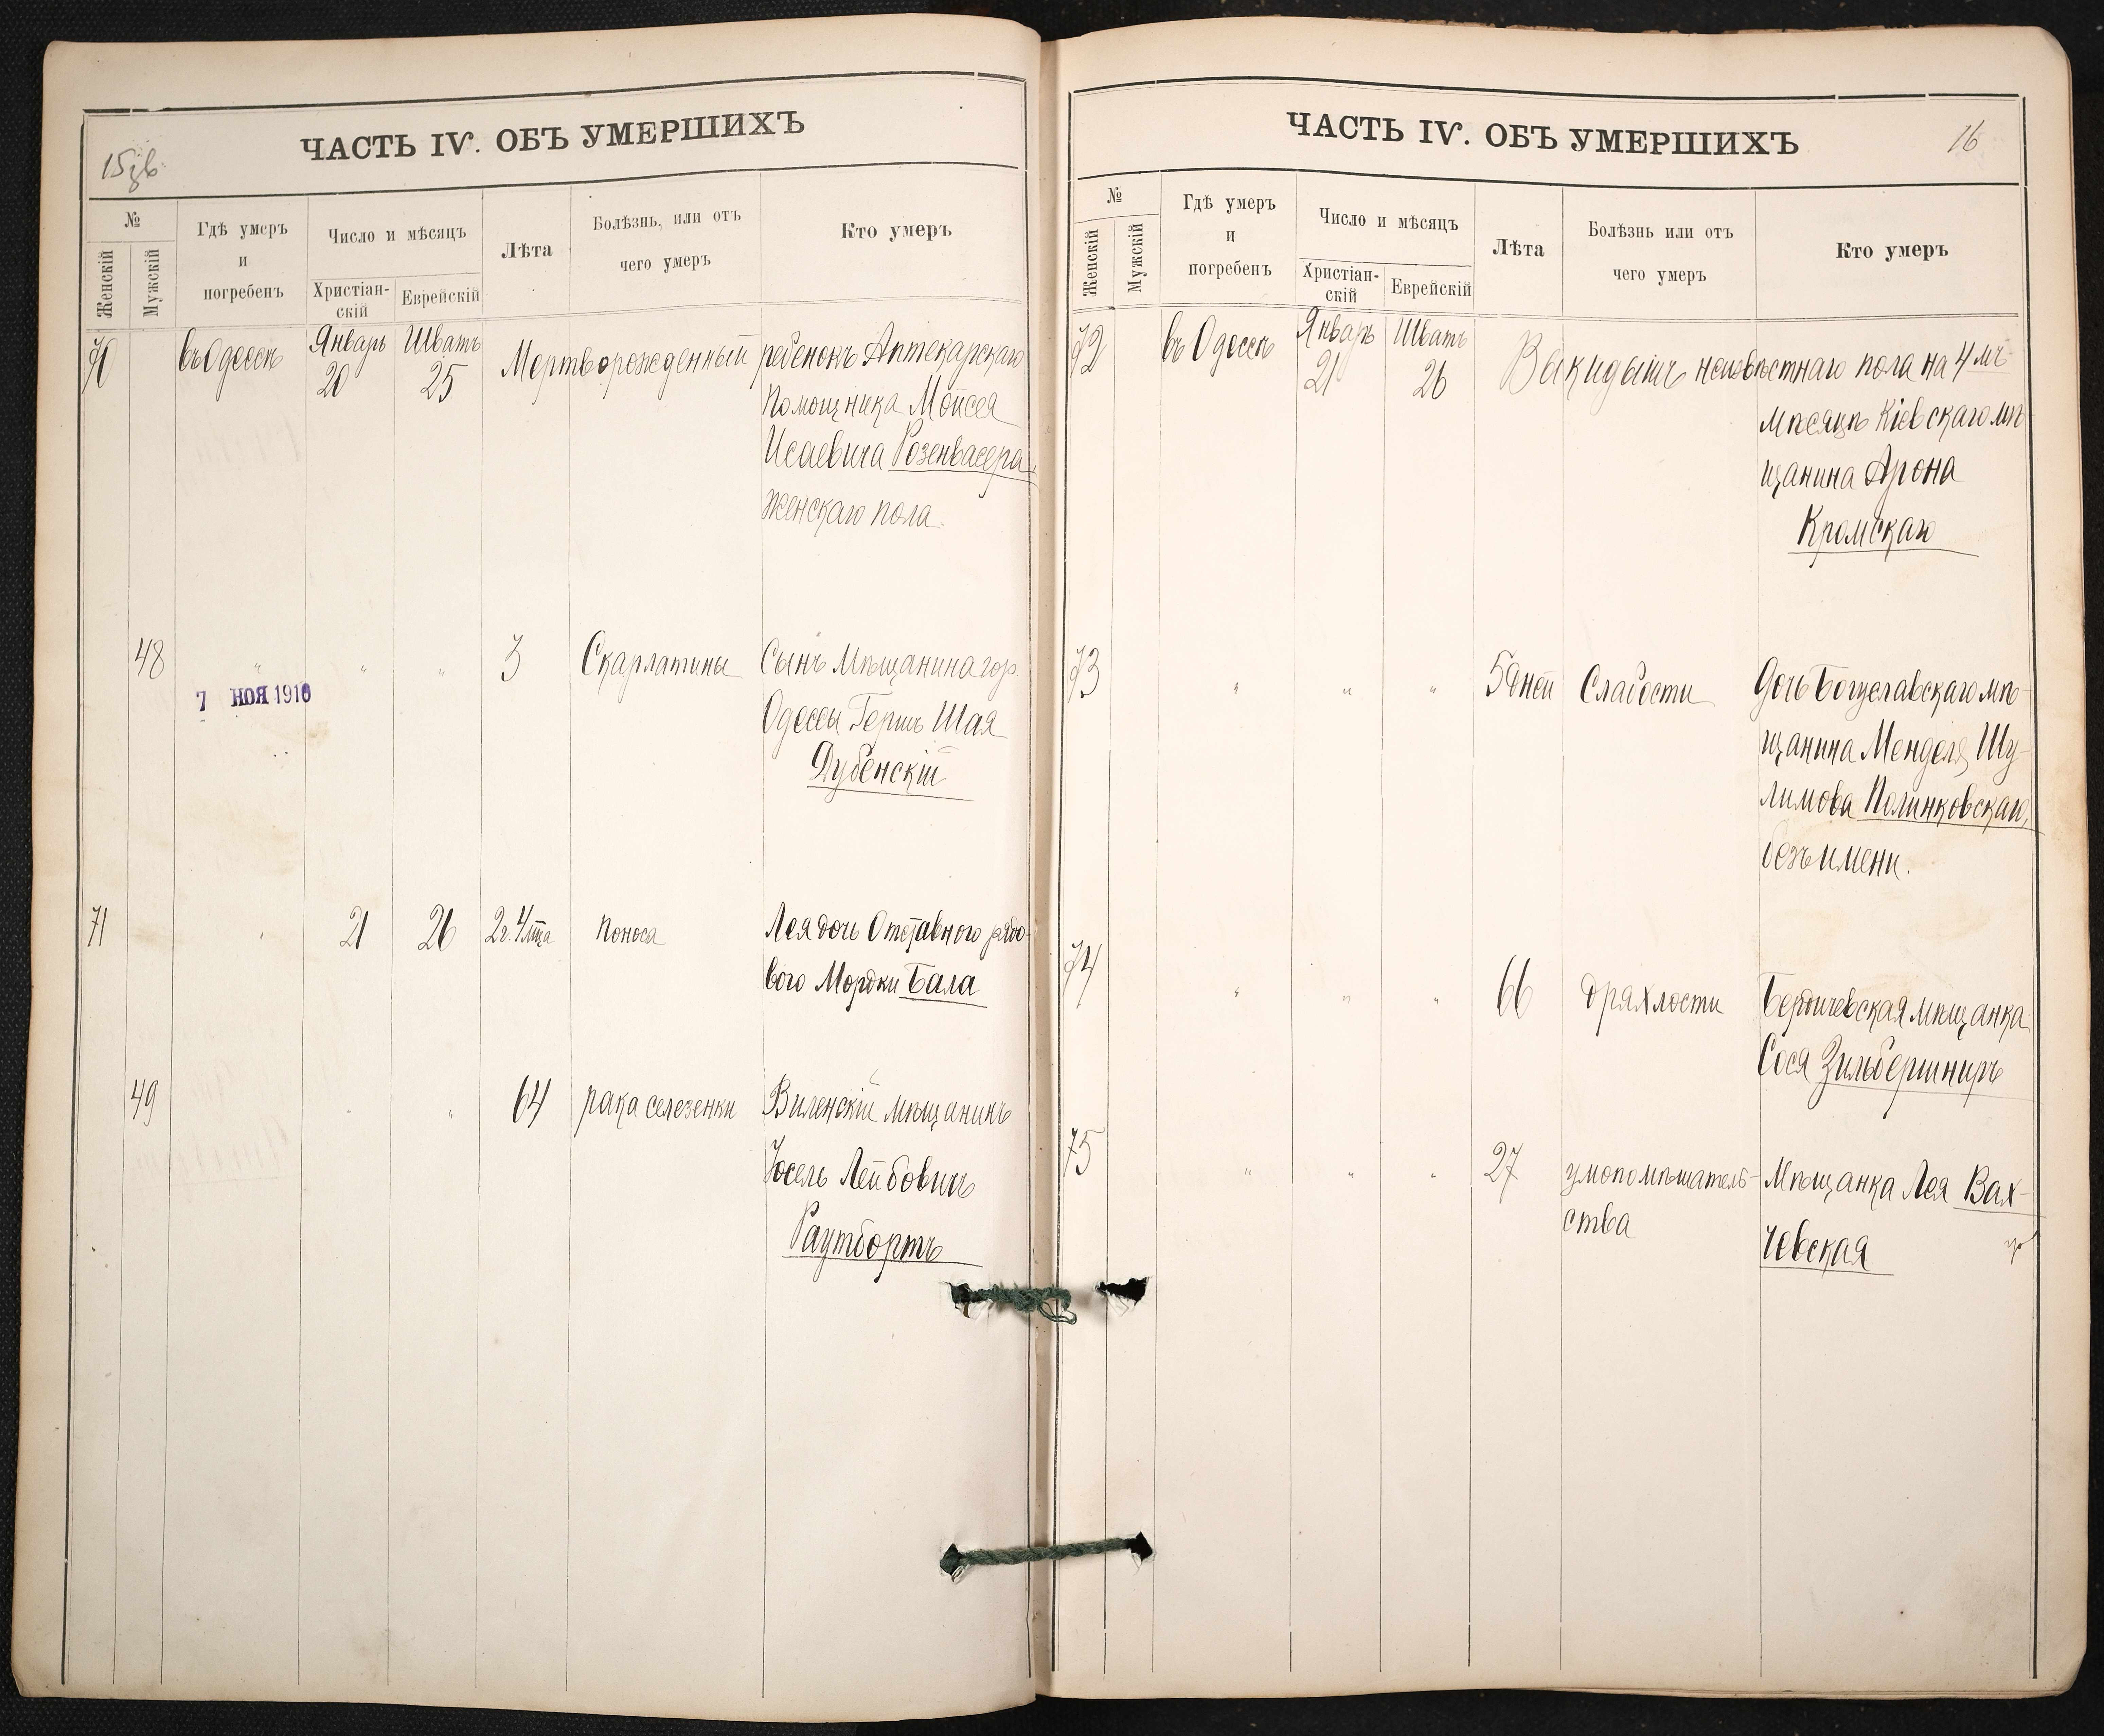 ЧАСТЬ IV. ОБЪ УМЕРШИХЪ
15
№
Женскій
Мужскій
Гдѣ умеръ
и
погребенъ
Число и мѣсяцъ
Христіан-
скій
Еврейскій
Лѣта
Болѣзнь, или отъ
чего умеръ
Кто умеръ
70 въ Одессѣ Январь 20 Шватъ 25 Мертворожденный ребенокъ Аптекарскаго
Помощника Мойсея
Исаевича Розенвасера
женскаго пола.
48 " " " 3 Скарлатины Сынъ мѣщанина гор.
7 НОЯ 1910
Одессы Гершъ Шая
Дубенскій
71 " 21 26 2 г. 4 м-ца поноса Лея дочь Отставного рядо-
вого Мордки Бала
49 " " 64 рака селезенки Виленскій мѣщанинъ
Іосель Лейбовичъ
Раутбортъ
ЧАСТЬ IV. ОБЪ УМЕРШИХЪ
16
№
Женскій
Мужскій
Гдѣ умеръ
и
погребенъ
Число и мѣсяцъ
Христіан-
скій
Еврейскій
Лѣта
Болѣзнь или отъ
чего умеръ
Кто умеръ
72 въ Одессѣ Январь 21 Шватъ 26 Выкидышъ неизвѣстнаго пола на 4 мъ
мѣсяцѣ Кіевскаго мѣ-
щанина Арона
Кромскаго
73 " " " 5 дней Слабости Дочь Богуславскаго мѣ-
щанина Менделя Шу-
лимова Полинковскаго,
безъ имени.
74 " " " 66 дряхлости Бердичевская мѣщанка
Сося Зильбершниръ
75 " " " 27 умопомѣшатель- Мѣщанка Лея Вах-
ства чевская